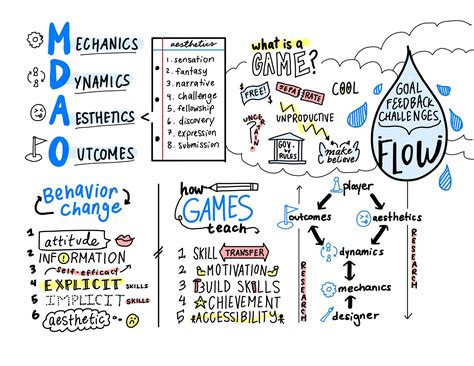 MECHANICS
DYNAMICS
AESTHETICS
OUTCOMES
aesthetics
1. sensation
2. fantasy
3. narrative
4. challenge
5. fellowship
6. discovery
7. expression
8. submission
what is a
GAME?
FREE!
SEPARATE
COOL
UNCERTAIN
UNPRODUCTIVE
GOV. by RULES
make believe!
GOAL
FEEDBACK
CHALLENGES
FLOW
Behavior
Change
1 attitude
2 INFORMATION
3 self-efficacy
4 EXPLICIT SKILLS
5 IMPLICIT SKILLS
6 aesthetic
how
GAMES
teach
1 SKILL TRANSFER
2 MOTIVATION
3 BUILD SKILLS
4 ACHIEVEMENT
5 ACCESSIBILITY
player
outcomes
aesthetics
dynamics
mechanics
designer
RESEARCH
RESEARCH